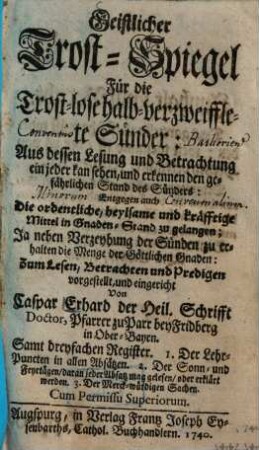 Geistlicher
Trost-Spiegel
Für die
Trost-lose halb-verzweiffle-
te Sünder:
Conventus
Aus dessen Lesung und Betrachtung
ein jeder kan sehen, und erkennen den ge-
fährlichen Stand des Sünders:
Minorum Entgegen auch Conventualium
Die ordentliche, heylsame und kräfftige
Mittel in Gnaden-Stand zu gelangen;
Ja neben Verzeyhung der Sünden zu er-
halten die Menge der Göttlichen Gnaden:
Zum Lesen, Betrachten und Predigen
vorgestellt, und eingericht
Von
Caspar Erhard der Heil. Schrifft
Doctor, Pfarrer zu Parr bey Fridberg
in Ober-Bayrn.
Samt dreyfachen Register. 1. Der Lehr-
Puncten in allen Absätzen. 2. Der Sonn- und
Feyrtägen / daran jeder Absatz mag gelesen / oder erklärt
werden. 3. Der Merck-würdigen Sachen.
Cum Permissu Superiorum.
Augspurg, in Verlag Frantz Joseph Ey-
senbarths, Cathol. Buchhandlern. 1740.